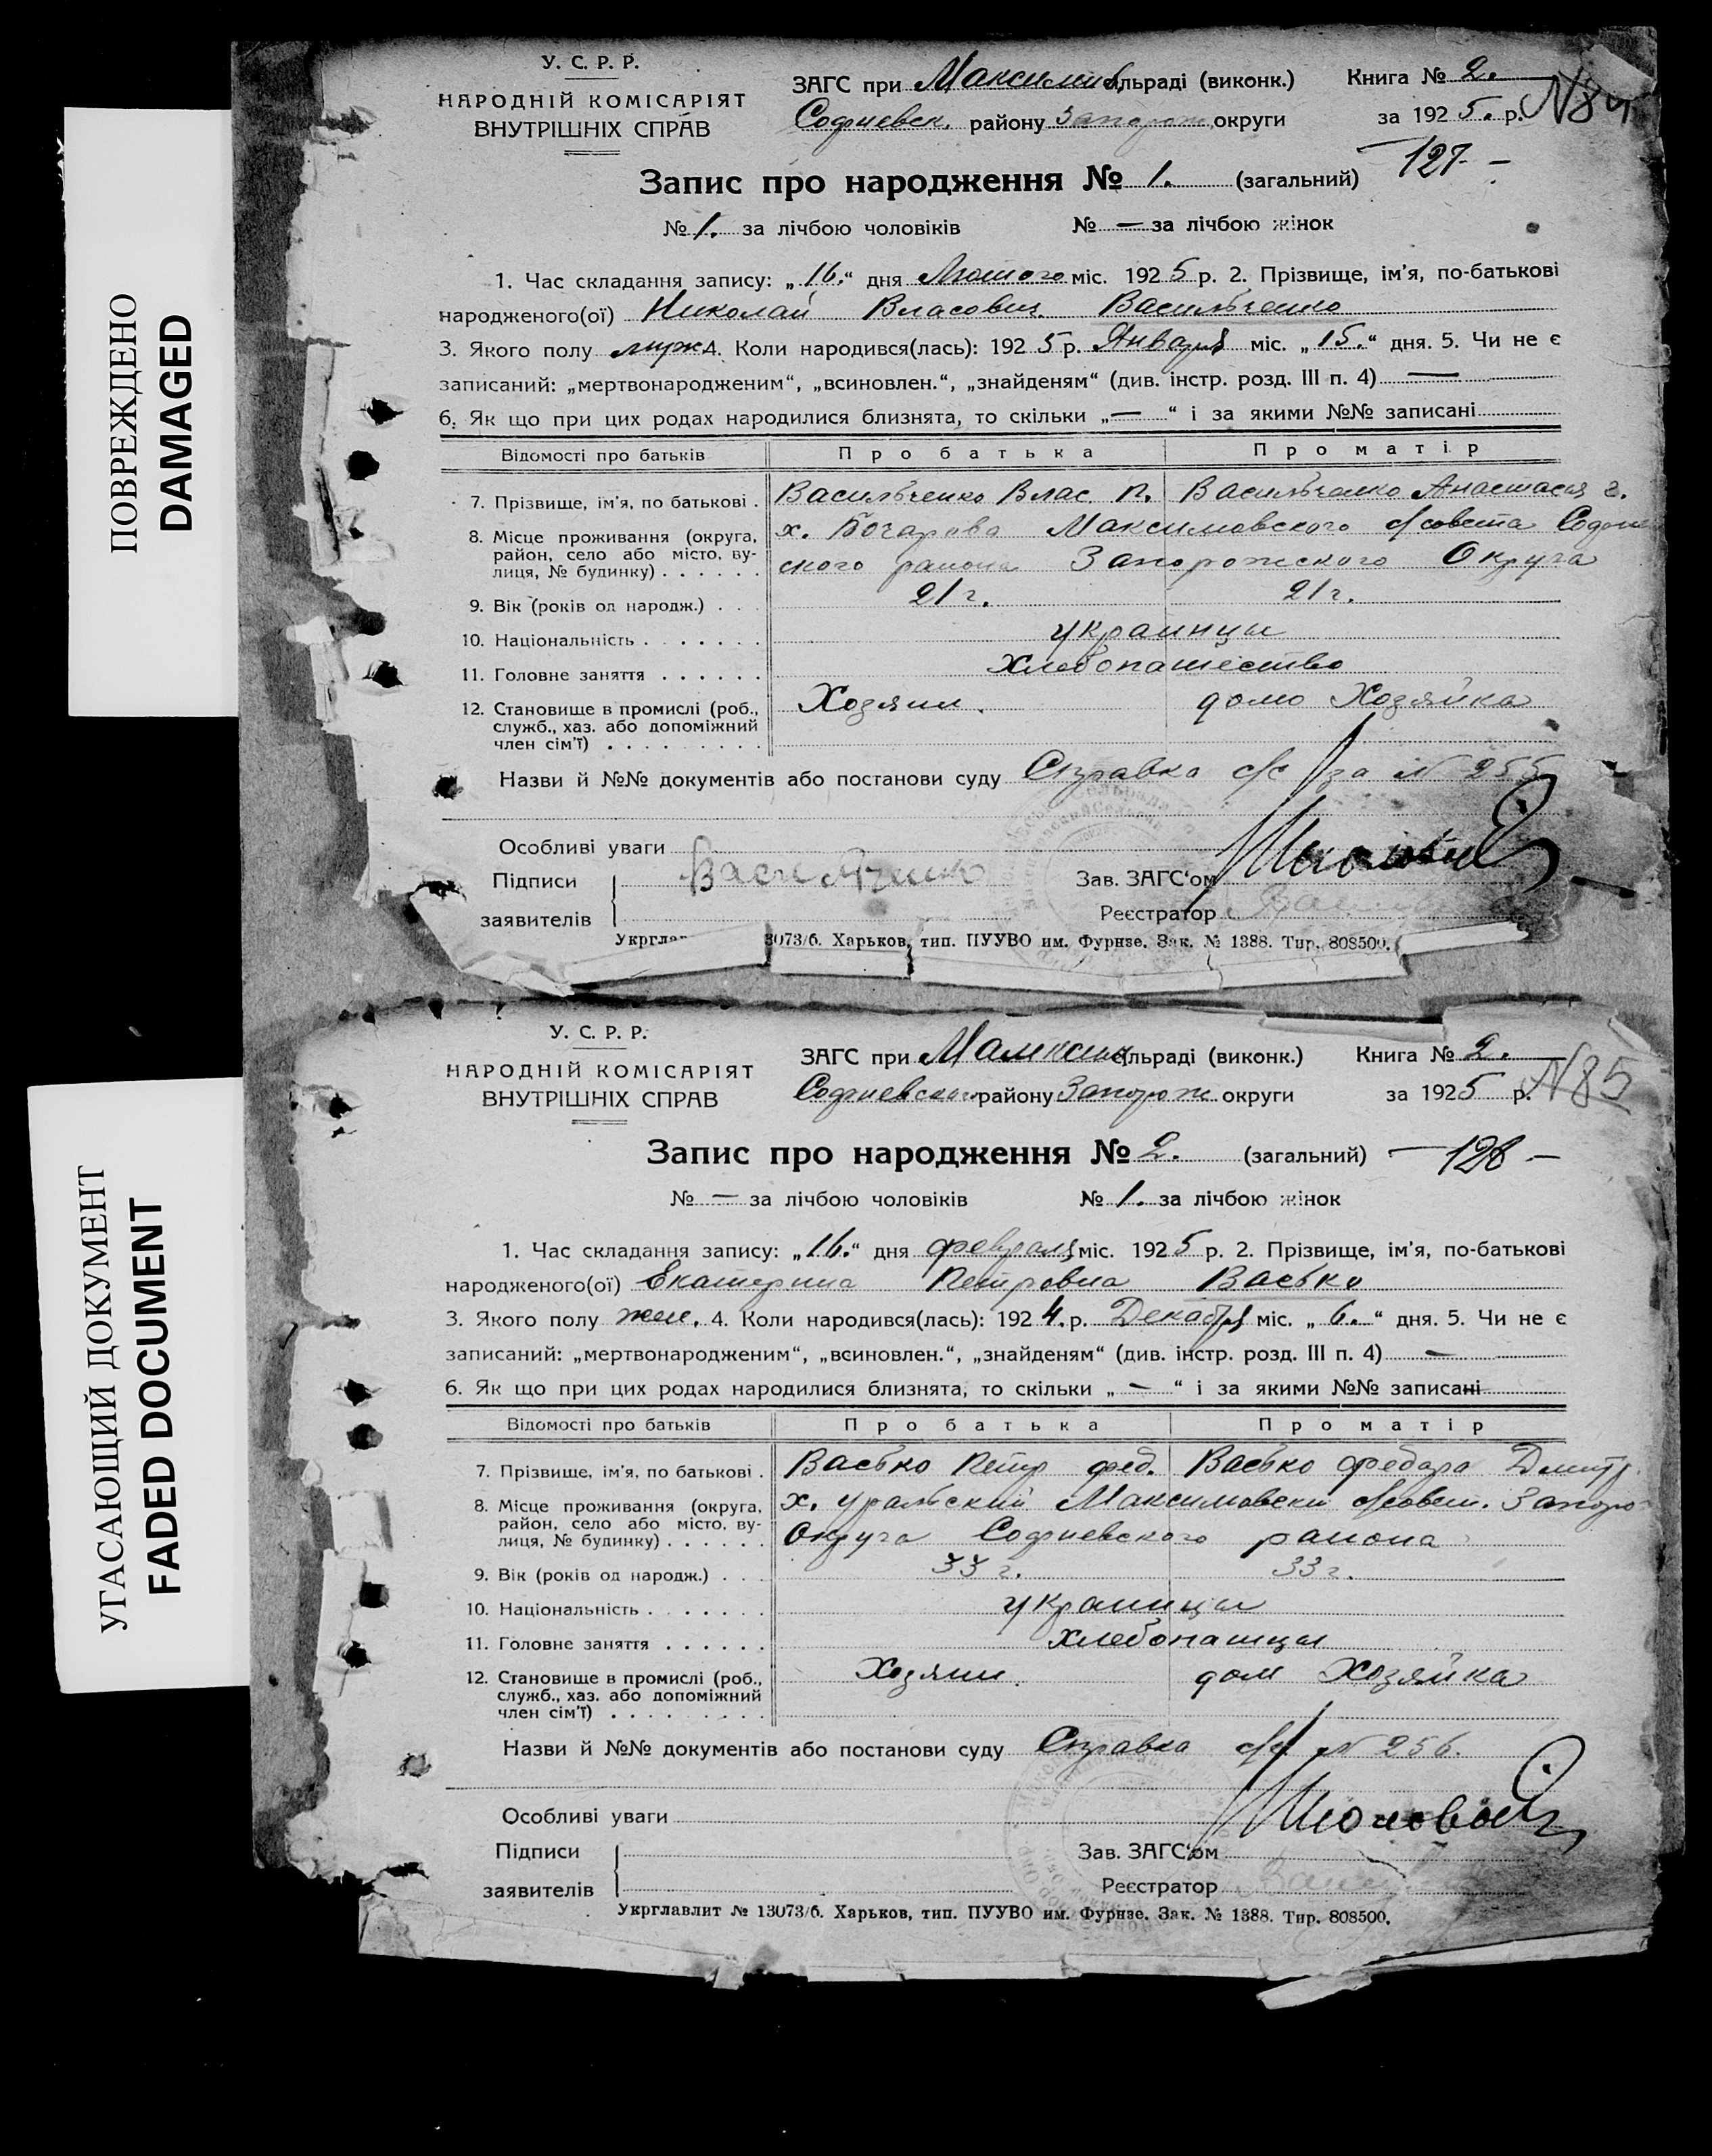 ПОВРЕЖДЕНО
DAMAGED
У. С. Р. Р.
НАРОДНІЙ КОМІСАРІЯТ
ВНУТРІШНІХ СПРАВ
ЗАГС при Максимов сільраді (виконк.)
Софиевск. району Запорож округи
Книга № 2.
за 1925. р. N84
127 -
Запис про народження № 1. (загальний)
№ 1. за лічбою чоловіків № — за лічбою жінок
1. Час складання запису: „16.“ дня Лютого міс. 1925 р. 2. Прізвище, ім’я, по-батькові
народженого(ої) Николай Власович Васильченко
3. Якого полу муж. 4. Коли народився(лась): 1925 р. Января міс. „15.“ дня. 5. Чи не є
записаний: „мертвонародженим“, „всиновлен.“, „знайденям“ (див. інстр. розд. III п. 4) —
6. Як що при цих родах народилися близнята, то скільки „—“ і за якими №№ записані
Відомості про батьків Про батька Про матір
7. Прізвище, ім’я, по батькові . Васильченко Влас. П. Васильченко Анастасія г.
8. Місце проживання (округа, район, село або місто, вулиця, № будинку) х. Бочарово Максимовского с/совета Софиев
ского района Запорожского Округа
9. Вік (років од народж.) 21 г. 21 г.
10. Національність украинцы
11. Головне заняття хлебопашество
12. Становище в промислі (роб., служб., хаз. або допоміжний член сім’ї) Хозяин. домо Хозяйка
Назви й №№ документів або постанови суду Справка с/с за N 255
Особливі уваги
Підписи Васильченко
заявителів
Зав. ЗАГС‘ом
Реєстратор
Укрглав 3073/6. Харьков, тип. ПУУВО им. Фрунзе. Зак. № 1388. Тир. 808500.
УГАСАЮЩИЙ ДОКУМЕНТ
FADED DOCUMENT
У. С. Р. Р.
НАРОДНІЙ КОМІСАРІЯТ
ВНУТРІШНІХ СПРАВ
ЗАГС при сільраді (виконк.)
Софиевского району Запорож округи
Книга № 2.
за 1925 р. N85
— 128 —
Запис про народження № 2. (загальний)
№ — за лічбою чоловіків № 1. за лічбою жінок
1. Час складання запису: „16.“ дня февраля міс. 1925 р. 2. Прізвище, ім’я, по-батькові
народженого(ої) Екатерина Петровна Васько
3. Якого полу жен. 4. Коли народився(лась): 1924. р. Декабря міс. „6.“ дня. 5. Чи не є
записаний: „мертвонародженим“, „всиновлен.“, „знайденям“ (див. інстр. розд. III п. 4) —
6. Як що при цих родах народилися близнята, то скільки „—“ і за якими №№ записані
Відомості про батьків Про батька Про матір
7. Прізвище, ім’я, по батькові . Васько Петр фед. Васько федора Дмитр.
8. Місце проживання (округа, район, село або місто, вулиця, № будинку) х. Уральский Максимовски с/совет. Запоро
Округа Софиевского района
9. Вік (років од народж.) 33 г. 33 г.
10. Національність украинцы
11. Головне заняття хлебопашцы
12. Становище в промислі (роб., служб., хаз. або допоміжний член сім’ї) Хозяин. дом Хозяйка
Назви й №№ документів або постанови суду Справка с/с N 256.
Особливі уваги
Підписи
заявителів
Зав. ЗАГС‘ом
Реєстратор
Укрглавлит № 13073/6. Харьков, тип. ПУУВО им. Фрунзе. Зак. № 1388. Тир. 808500.